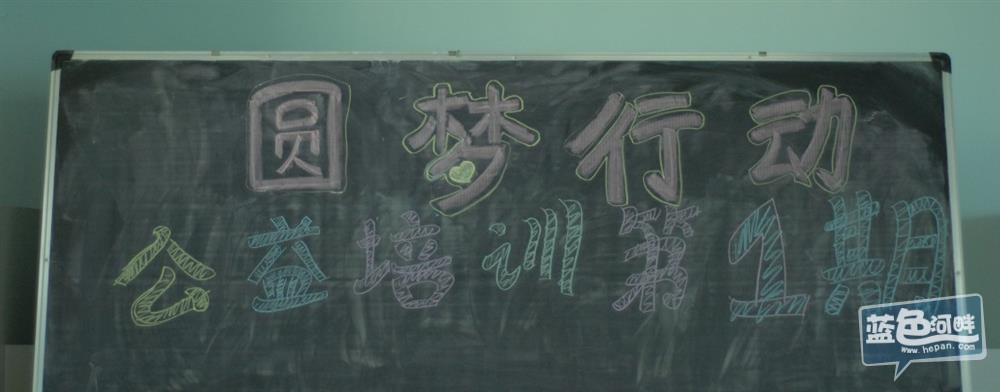 圆梦行动
公益培训第1期
蓝色河畔
www.hepan.com